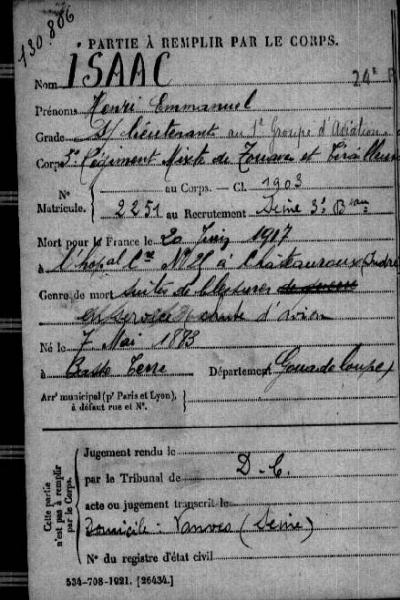 130.886
PARTIE À REMPLIR PAR LE CORPS.
Nom ISAAC
24e
Prénoms Henri Emmanuel
Grade S/lieutenant au 1er Groupe d'Aviation
Corps 3e Régiment Mixte de Zouaves et Tirailleurs
N° Matricule. { au Corps. — Cl. 1903
2251 au Recrutement Seine 3e Bau
Mort pour la France le 20 Juin 1917
à l'hôpal Cre N° 25 à Châteauroux (Indre
Genre de mort suites de blessures
en service chute d'avion
Né le 7 Mai 1883
à Basse Terre Département Gouadeloupe)
Arrt municipal (pr Paris et Lyon), à défaut rue et N°.
Cette partie n'est pas à remplir par le Corps.
Jugement rendu le
par le Tribunal de D.C.
acte ou jugement transcrit le
Domicile : Vanves (Seine)
N° du registre d'état civil
534-708-1921. [26434.]